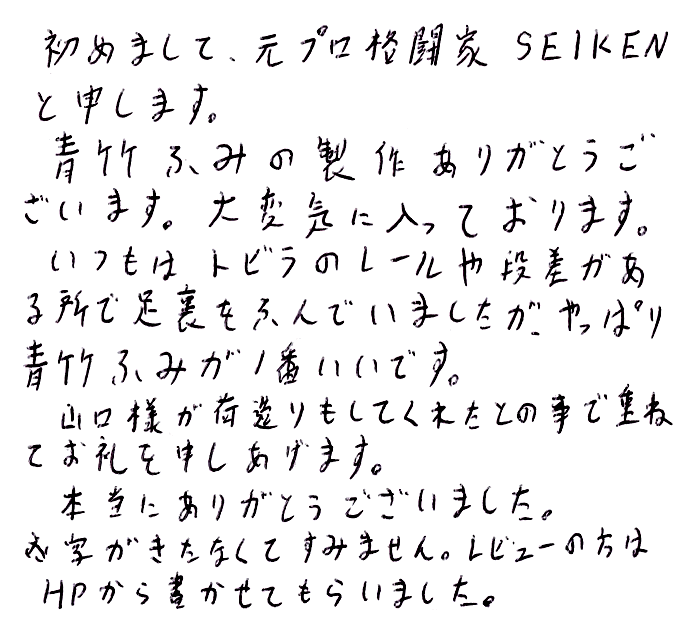 初めまして、元プロ格闘家 SEIKEN
と申します。
青竹ふみの製作ありがとうご
ざいます。大変気に入っております。
いつもはトビラのレールや段差があ
る所で足裏をふんでいましたが、やっぱり
青竹ふみが1番いいです。
山口様が荷造りもしてくれたとの事で重ね
てお礼を申しあげます。
本当にありがとうございました。
字がきたなくてすみません。レビューの方は
HPから書かせてもらいました。